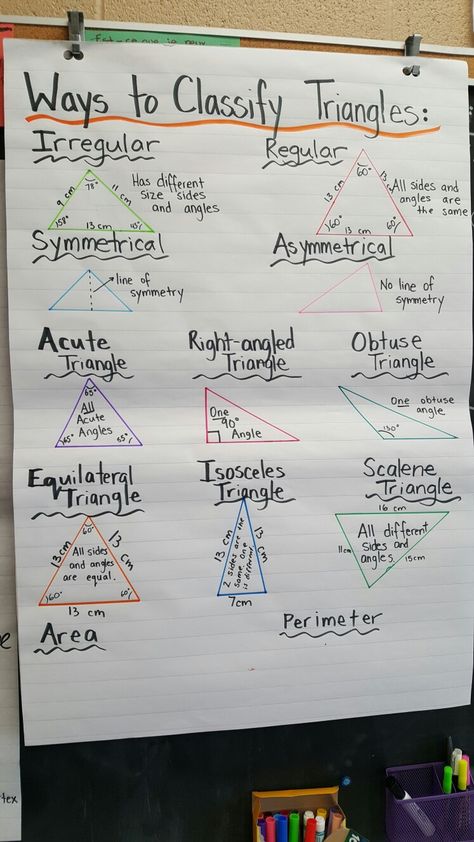 Ways to Classify Triangles:
Irregular
9 cm
11 cm
78°
13 cm
Has different
size sides
and angles
Regular
60°
13 cm
13
60°
60°
13 cm
All sides and
angles are
the same
Symmetrical
line of
symmetry
Asymmetrical
No line of
symmetry
Acute
Triangle
65°
All
Acute
Angles
65°
55°
Right-angled
Triangle
One
90°
Angle
Obtuse
Triangle
One obtuse
angle
130°
Equilateral
Triangle
60°
13 cm
13 cm
All sides
and angles
are equal.
60°
60°
13 cm
Isosceles
Triangle
13 cm
13 cm
2 sides are the
same. One
is different.
7cm
Scalene
Triangle
16 cm
11cm
15cm
All different
sides and
angles.
Area
Perimeter